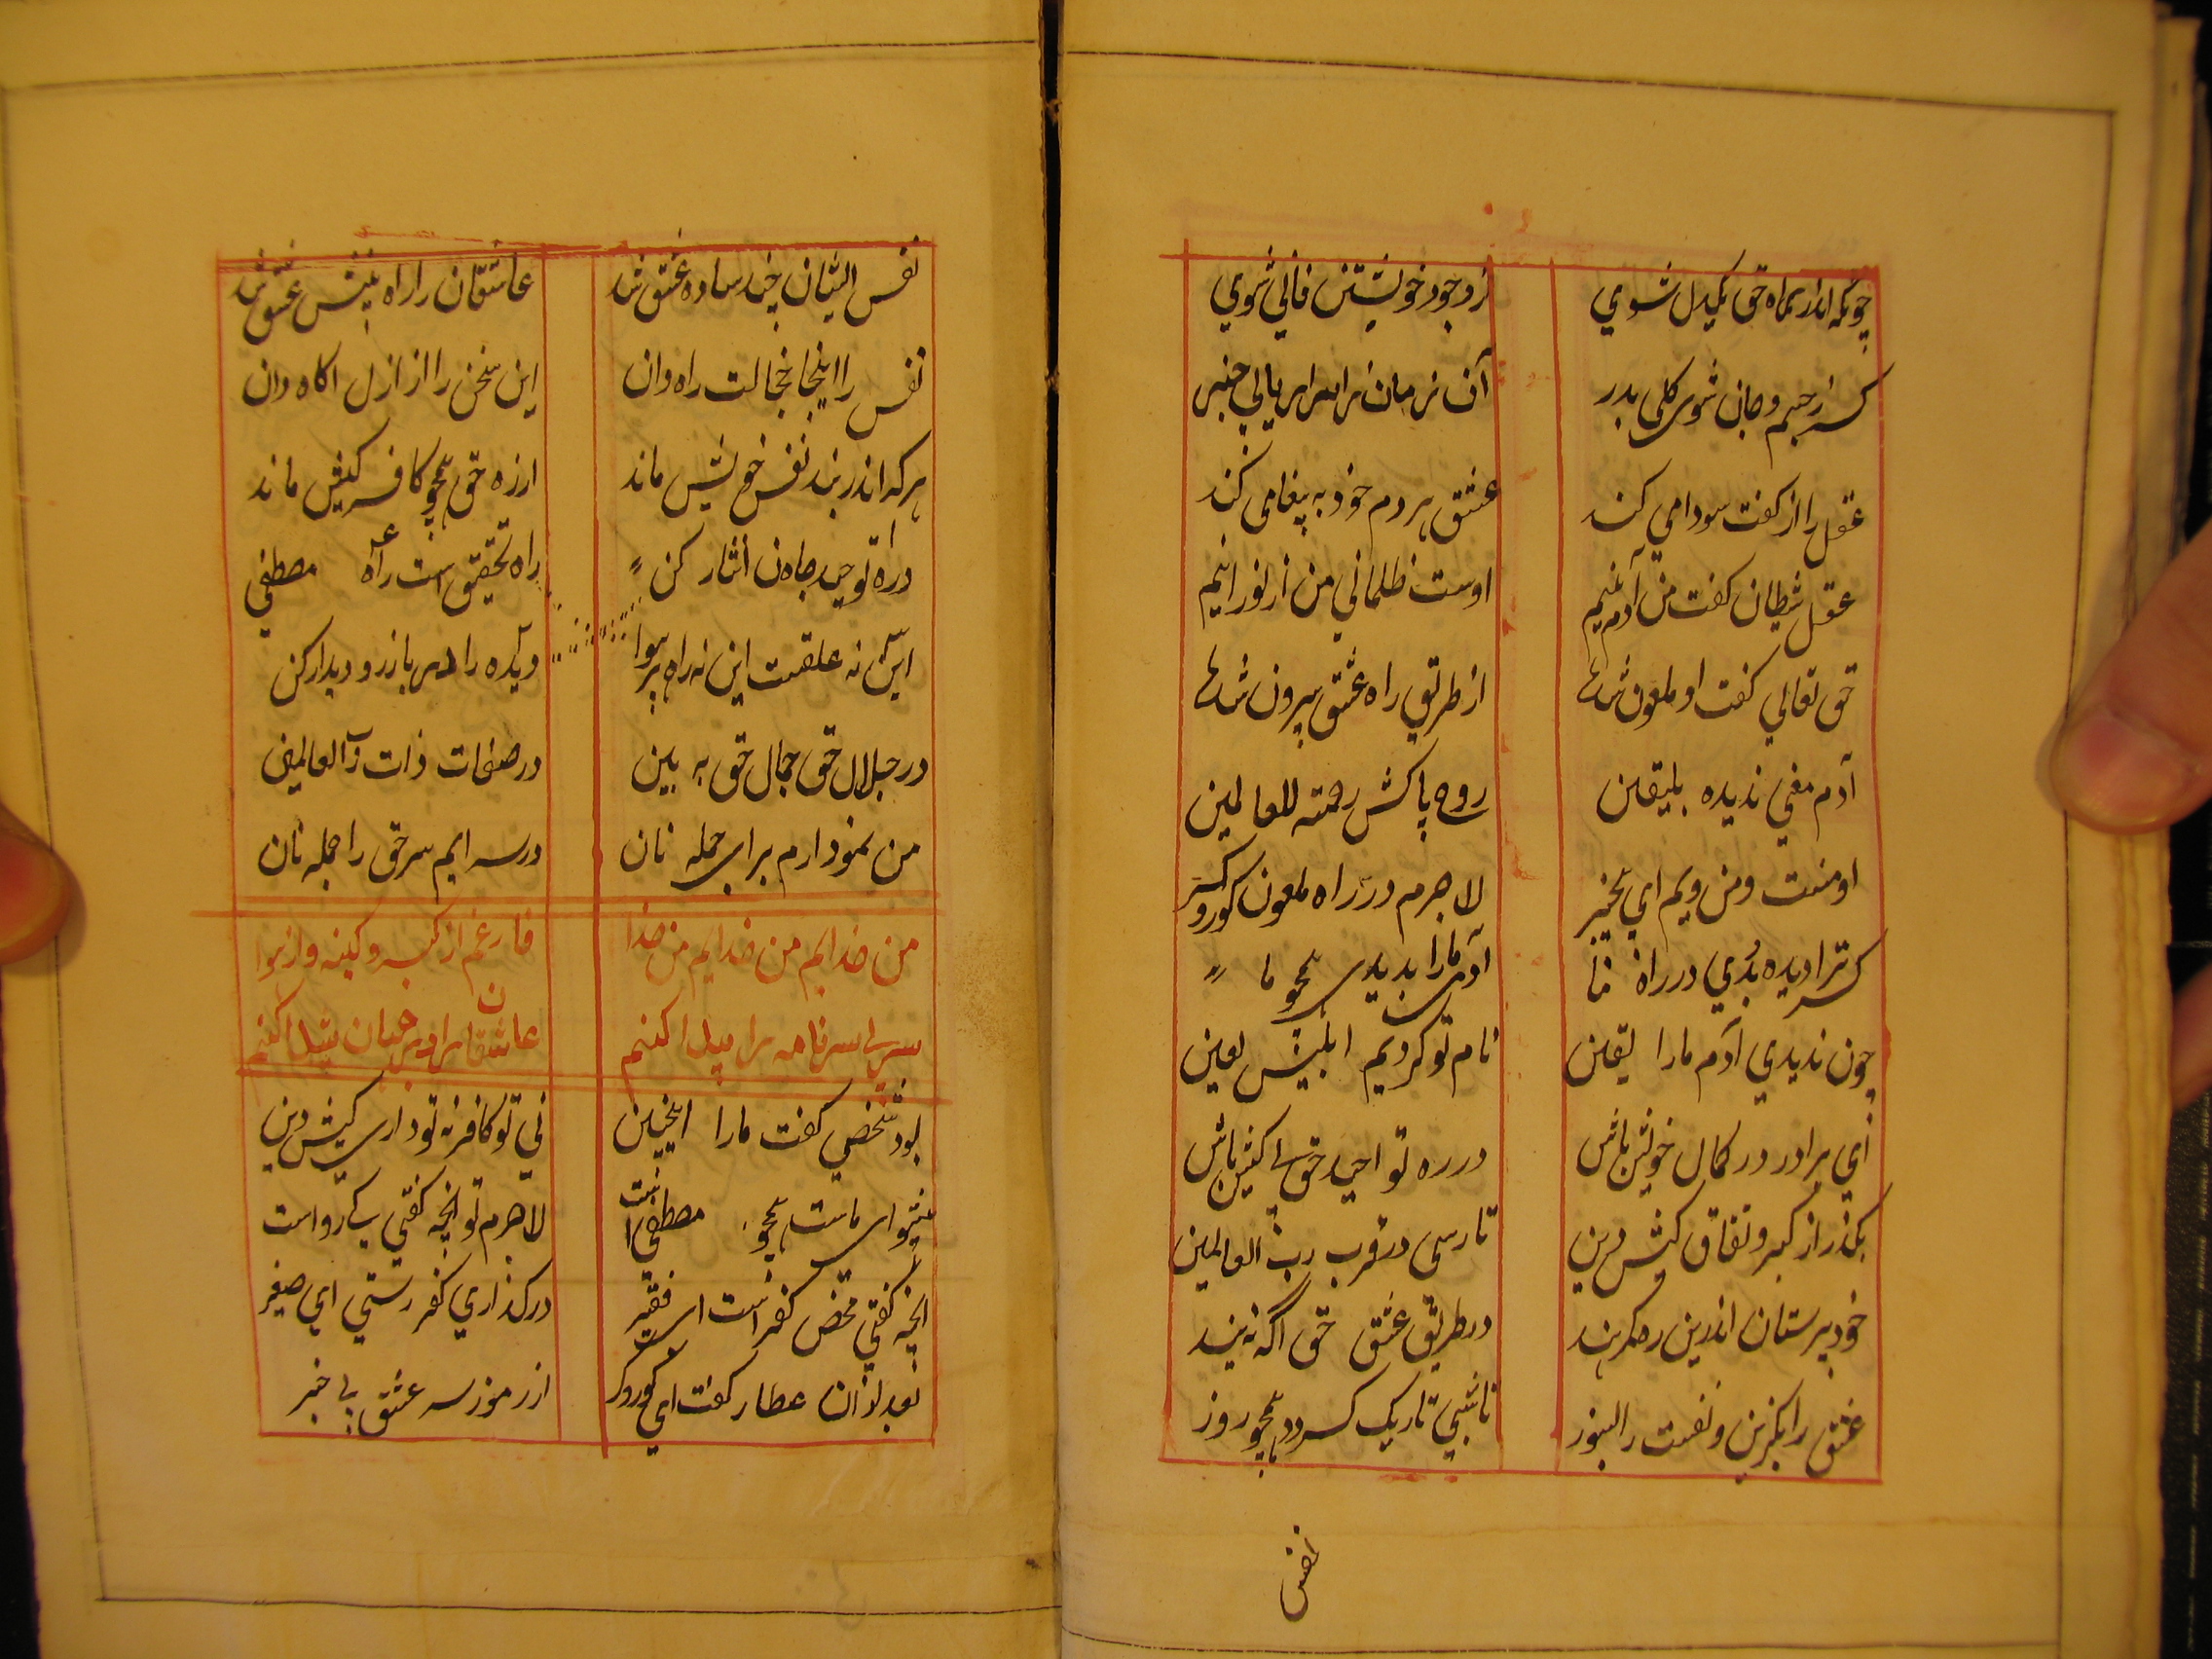 چونکه اندر راه حق یکدل شوی
از وجود خویشتن فانی شوی
کر ز جسم و جان شوی کلی بدر
آن زمان ز اسرار یابی خبر
عقل را از کفت سودا می کند
عشق هر دم خود به پیغامی کند
عقل شطان کفت من آدم نیم
اوست ظلمانی من از نورانیم
حق تعالی کفت او ملعون شد
از طریق راه عشق بیرون شد
آدم معنی ندیده بلیقین
روح پاکش رحمته للعالمین
او منست و من ویم ای بیخبر
لاجرم در راه ملعون کور و کر
کر ترا دیده بدی در راه ما
آدمی ما را بدیدی همچو ما
چون ندیدی آدم ما را یقین
نام تو کردیم ابلیس لعین
ای برادر در کمال خویش باش
در ره توحید حق بی کیش باش
بکذر از کبر و نفاق و کیش و دین
تا رسی در قرب رب العالمین
خود پرستان اندرین ره کمرهند
در طریق عشق حق اکه نیند
عشق را بکزین و نفست را بسوز
تا شبی تاریک کردد همچو روز
نفس
نفس ایشان چند ساده عشق شد
عاشقان را راه بینش عشق شد
نفس را اینجا خجالت راه دان
این سخن را از ازل اکاه دان
هر که اندر بند نفس خویش ماند
از ره حق همچو کافر کیش ماند
در ره توحید جان اثار کن
راه تحقیق است راه مصطفی
این نه علقست این نه راه بر هوا
دیده را در باز و دیدار کن
در جلال حق جمال حق به بین
در صفات ذات رب العالمین
من نمودارم برای جمله تان
در رسه ایم سر حق را جمله تان
من خدایم من خدایم من خدا
فارغم از کبر و کینه و از هوا
سر بی سر نامه را پیدا کنم
عاشقان را در جهان شیدا کنم
بود شخصی کفت ما را اینچنین
نی تو کافر نه تو داری کیش دین
پیشوای ماست همچو مصطفی
لاجرم تو انچه کفتی کی رواست
انچه کفتی محض کفر است ای فقیر
در کذاری کفر رستی ای صغیر
بعد از ان عطار کفت ای کور و کر
از رموز سر عشق بی خبر